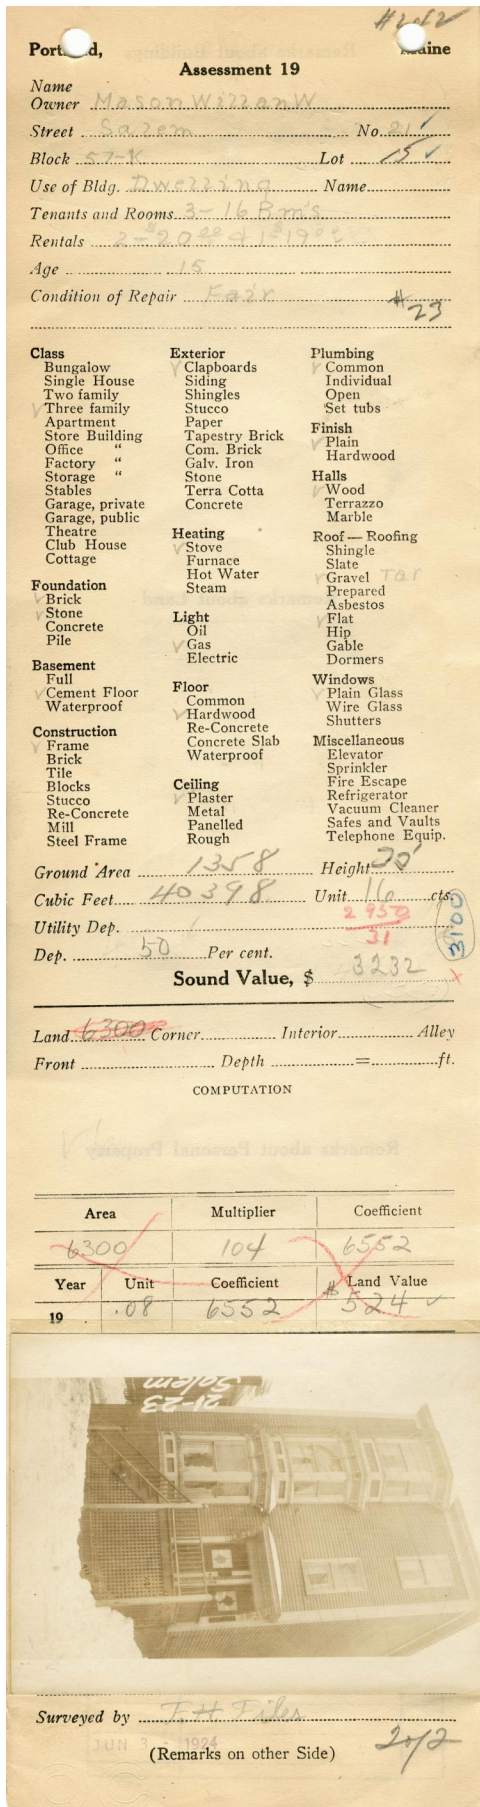 #2 of 2
Portland, Maine
Assessment 19
Name
Owner Mason Willan W
Street Salem No. 21 ✓
Block 57-K Lot 15 ✓
Use of Bldg. Dwelling Name
Tenants and Rooms 3-16 Rm's
Rentals 2-$20.00 & 1 $19.00
Age 15
Condition of Repair Fair #23
Class
Bungalow
Single House
Two family
✓ Three family
Apartment
Store Building
Office "
Factory "
Storage "
Stables
Garage, private
Garage, public
Theatre
Club House
Cottage
Foundation
✓ Brick
✓ Stone
Concrete
Pile
Basement
Full
✓ Cement Floor
Waterproof
Construction
✓ Frame
Brick
Tile
Blocks
Stucco
Re-Concrete
Mill
Steel Frame
Exterior
✓ Clapboards
Siding
Shingles
Stucco
Paper
Tapestry Brick
Com. Brick
Galv. Iron
Stone
Terra Cotta
Concrete
Heating
✓ Stove
Furnace
Hot Water
Steam
Light
Oil
✓ Gas
Electric
Floor
Common
✓ Hardwood
Re-Concrete
Concrete Slab
Waterproof
Ceiling
✓ Plaster
Metal
Panelled
Rough
Plumbing
✓ Common
Individual
Open
Set tubs
Finish
✓ Plain
Hardwood
Halls
✓ Wood
Terrazzo
Marble
Roof — Roofing
Shingle
Slate
✓ Gravel Tar
Prepared
Asbestos
✓ Flat
Hip
Gable
Dormers
Windows
✓ Plain Glass
Wire Glass
Shutters
Miscellaneous
Elevator
Sprinkler
Fire Escape
Refrigerator
Vacuum Cleaner
Safes and Vaults
Telephone Equip.
Ground Area 1358 Height
Cubic Feet 40398 Unit 16 cts.
2950
Utility Dep.
31
3100
Dep. 50 Per cent.
Sound Value, $ 3232
Land 6300 Corner Interior Alley
Front Depth = ft.
COMPUTATION
Area Multiplier Coefficient
6300 104 6552
Year Unit Coefficient Land Value
19 .08 6552 $524 ✓
21-23
Salem
Surveyed by F. H. Files
JUN 3 - 1924
2 of 2
(Remarks on other Side)